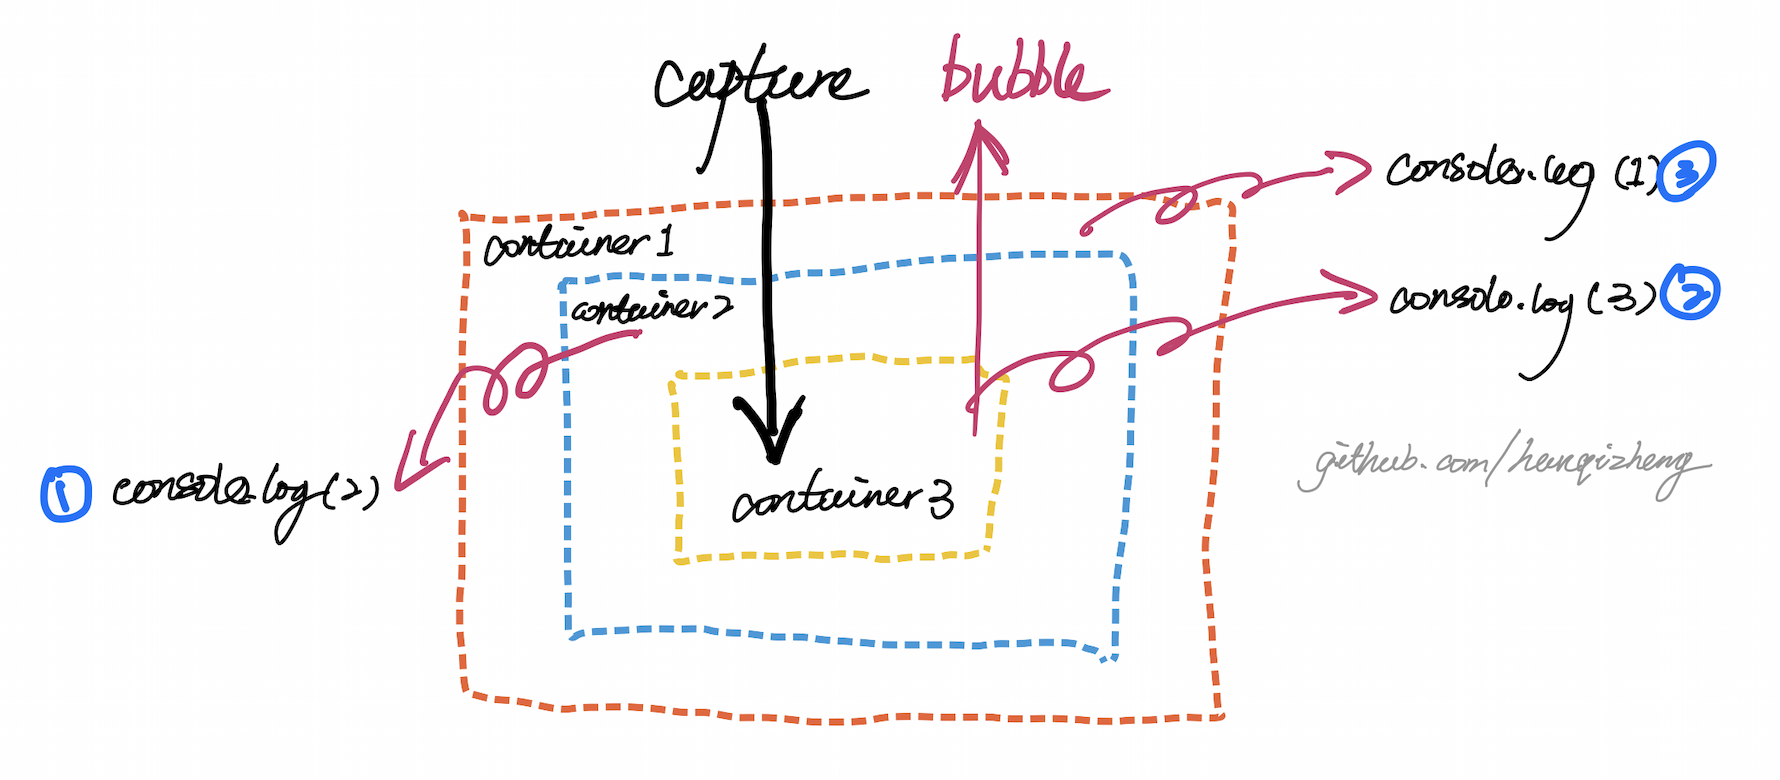 capture
bubble
console.log (1) 3
container 1
container 2
console.log (3) 2
1 console.log (2)
container 3
github.com/hanqizheng